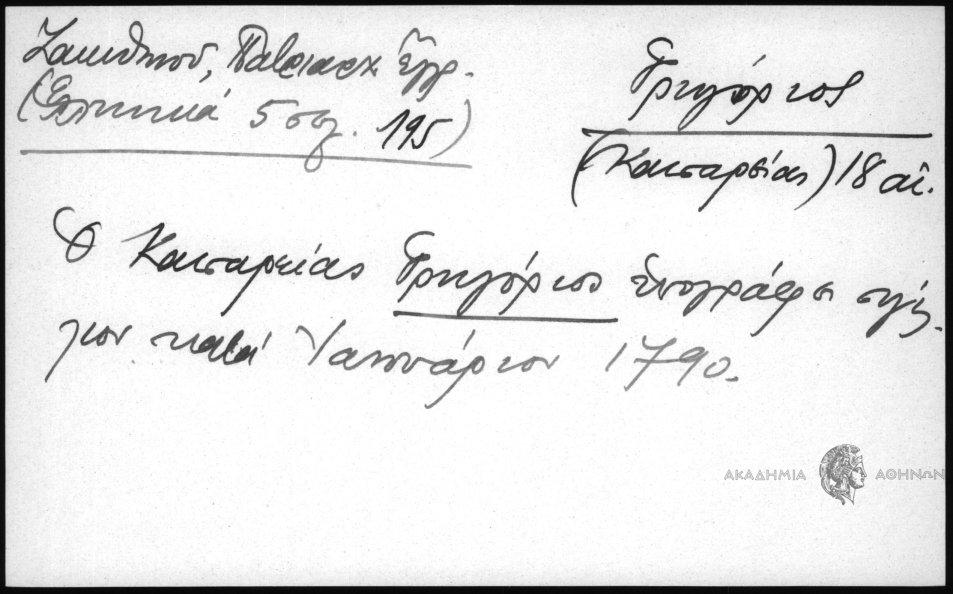 Ζακυθηνοῦ, Πατριαρχ. Ἔγγρ.
(Ἑλληνικά 5 σελ. 195)
Γρηγόριος
(Καισαρείας) 18 αἰ.
Ὁ Καισαρείας Γρηγόριος ὑπογράφει σιγίλ-
λιον κατά Ἰαννουάριον 1790.
ΑΚΑΔΗΜΙΑ ΑΘΗΝΩΝ